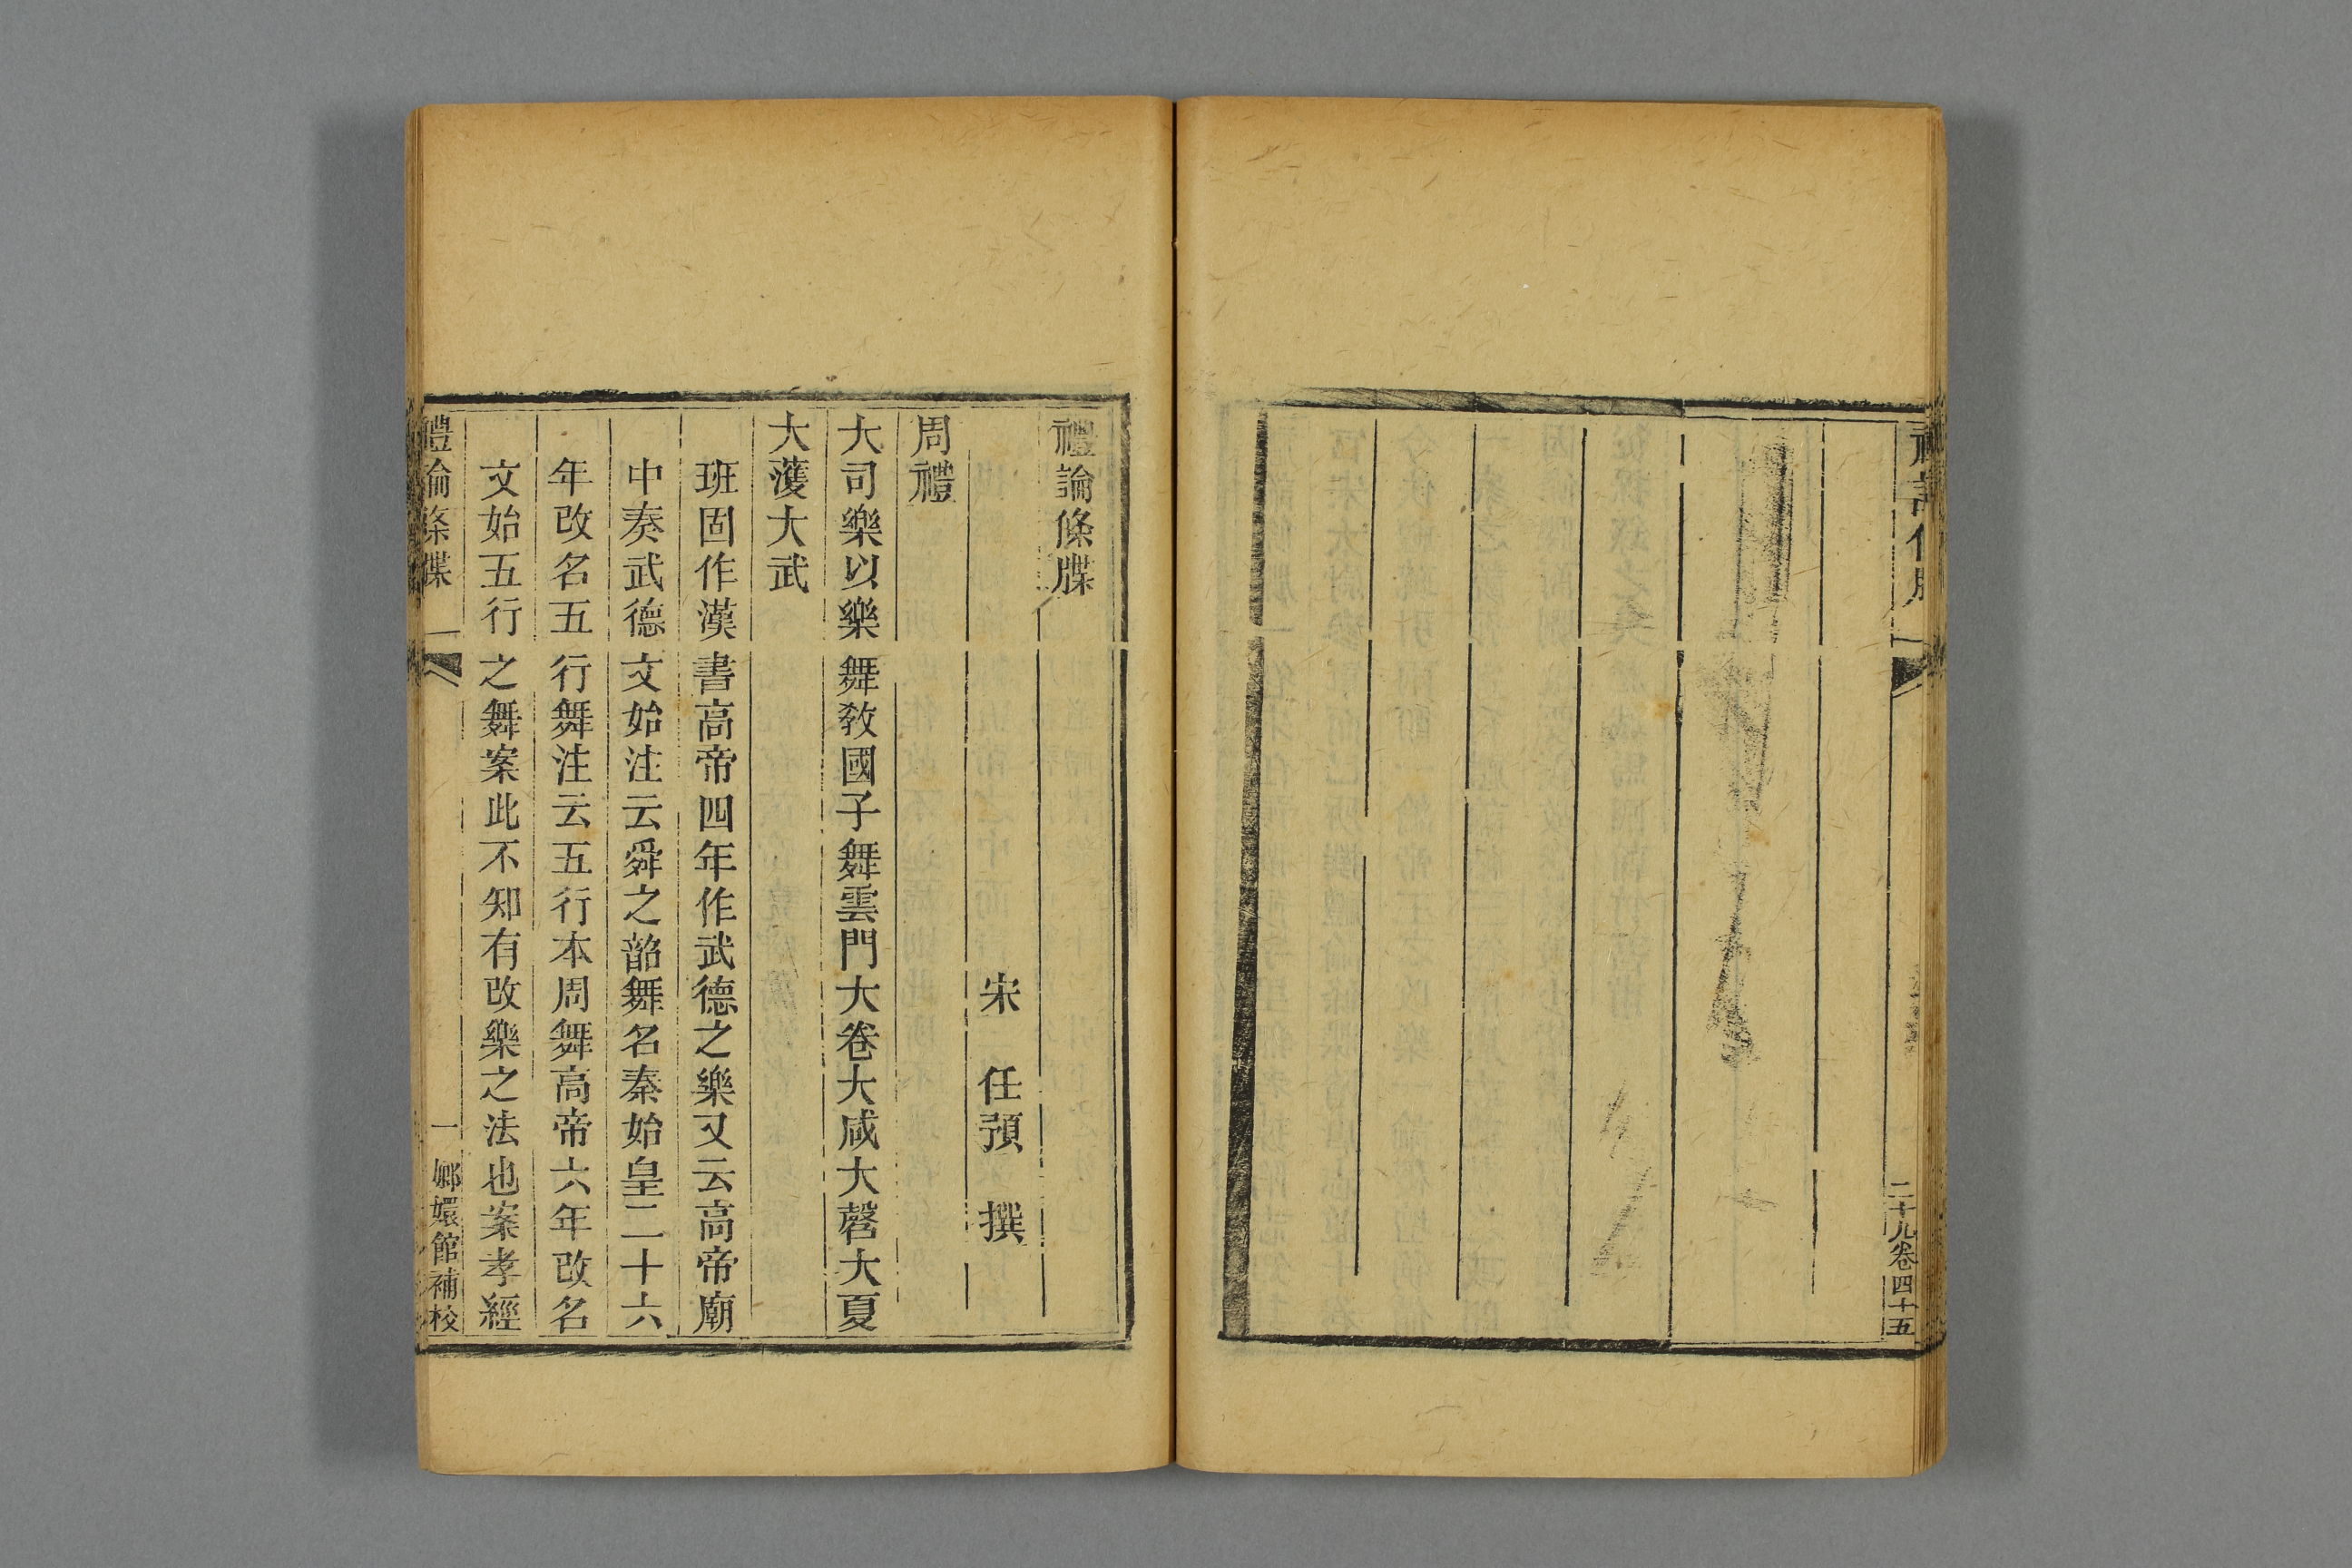 二十九卷四十五
禮論條牒
宋 任預 撰
周禮
大司樂以樂舞敎國子舞雲門大卷大咸大磬大夏
大濩大武
班固作漢書高帝四年作武德之樂又云高帝廟
中奏武德文始注云舜之韶舞名秦始皇二十六
年改名五行舞注云五行本周舞高帝六年改名
文始五行之舞案此不知有改樂之法也案孝經
禮論條牒 一 嫏嬛館補校